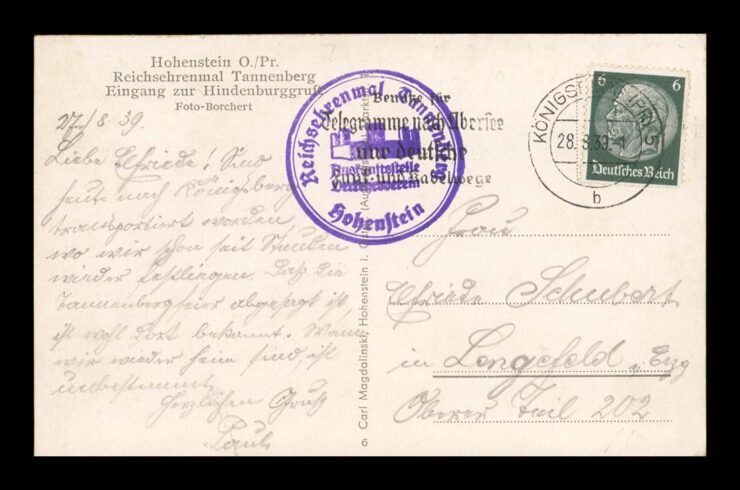 Hohenstein O./Pr.
Reichsehrenmal Tannenberg
Eingang zur Hindenburggruft
Foto-Borchert
27/8 39.
Liebe Elfriede! Sind
heute nach Königsberg
transportiert worden
wo wir schon seit Stunden
wieder festliegen. Daß die
Tannenbergfeier abgesagt ist,
ist wohl dort bekannt. Wann
wir wieder heim sind, ist
unbestimmt.
Herzlichen Gruß
Paul
Reichsehrenmal Tannenberg
Auskunftsstelle
Verkehrsverein
Hohenstein
Benutze für
Telegramme nach Übersee
nur deutsche
Funk- und Kabelwege
KÖNIGSB (PR) 5
28.8.39
b
6 6
Deutsches Reich
© Carl Magdalinski, Hohenstein i. Ostpr.
Frau
Elfriede Schubert
in Lengefeld, Erzg
Oberer Teil 202